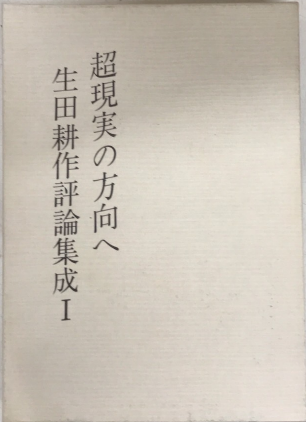 超現実の方向へ
生田耕作評論集成Ⅰ